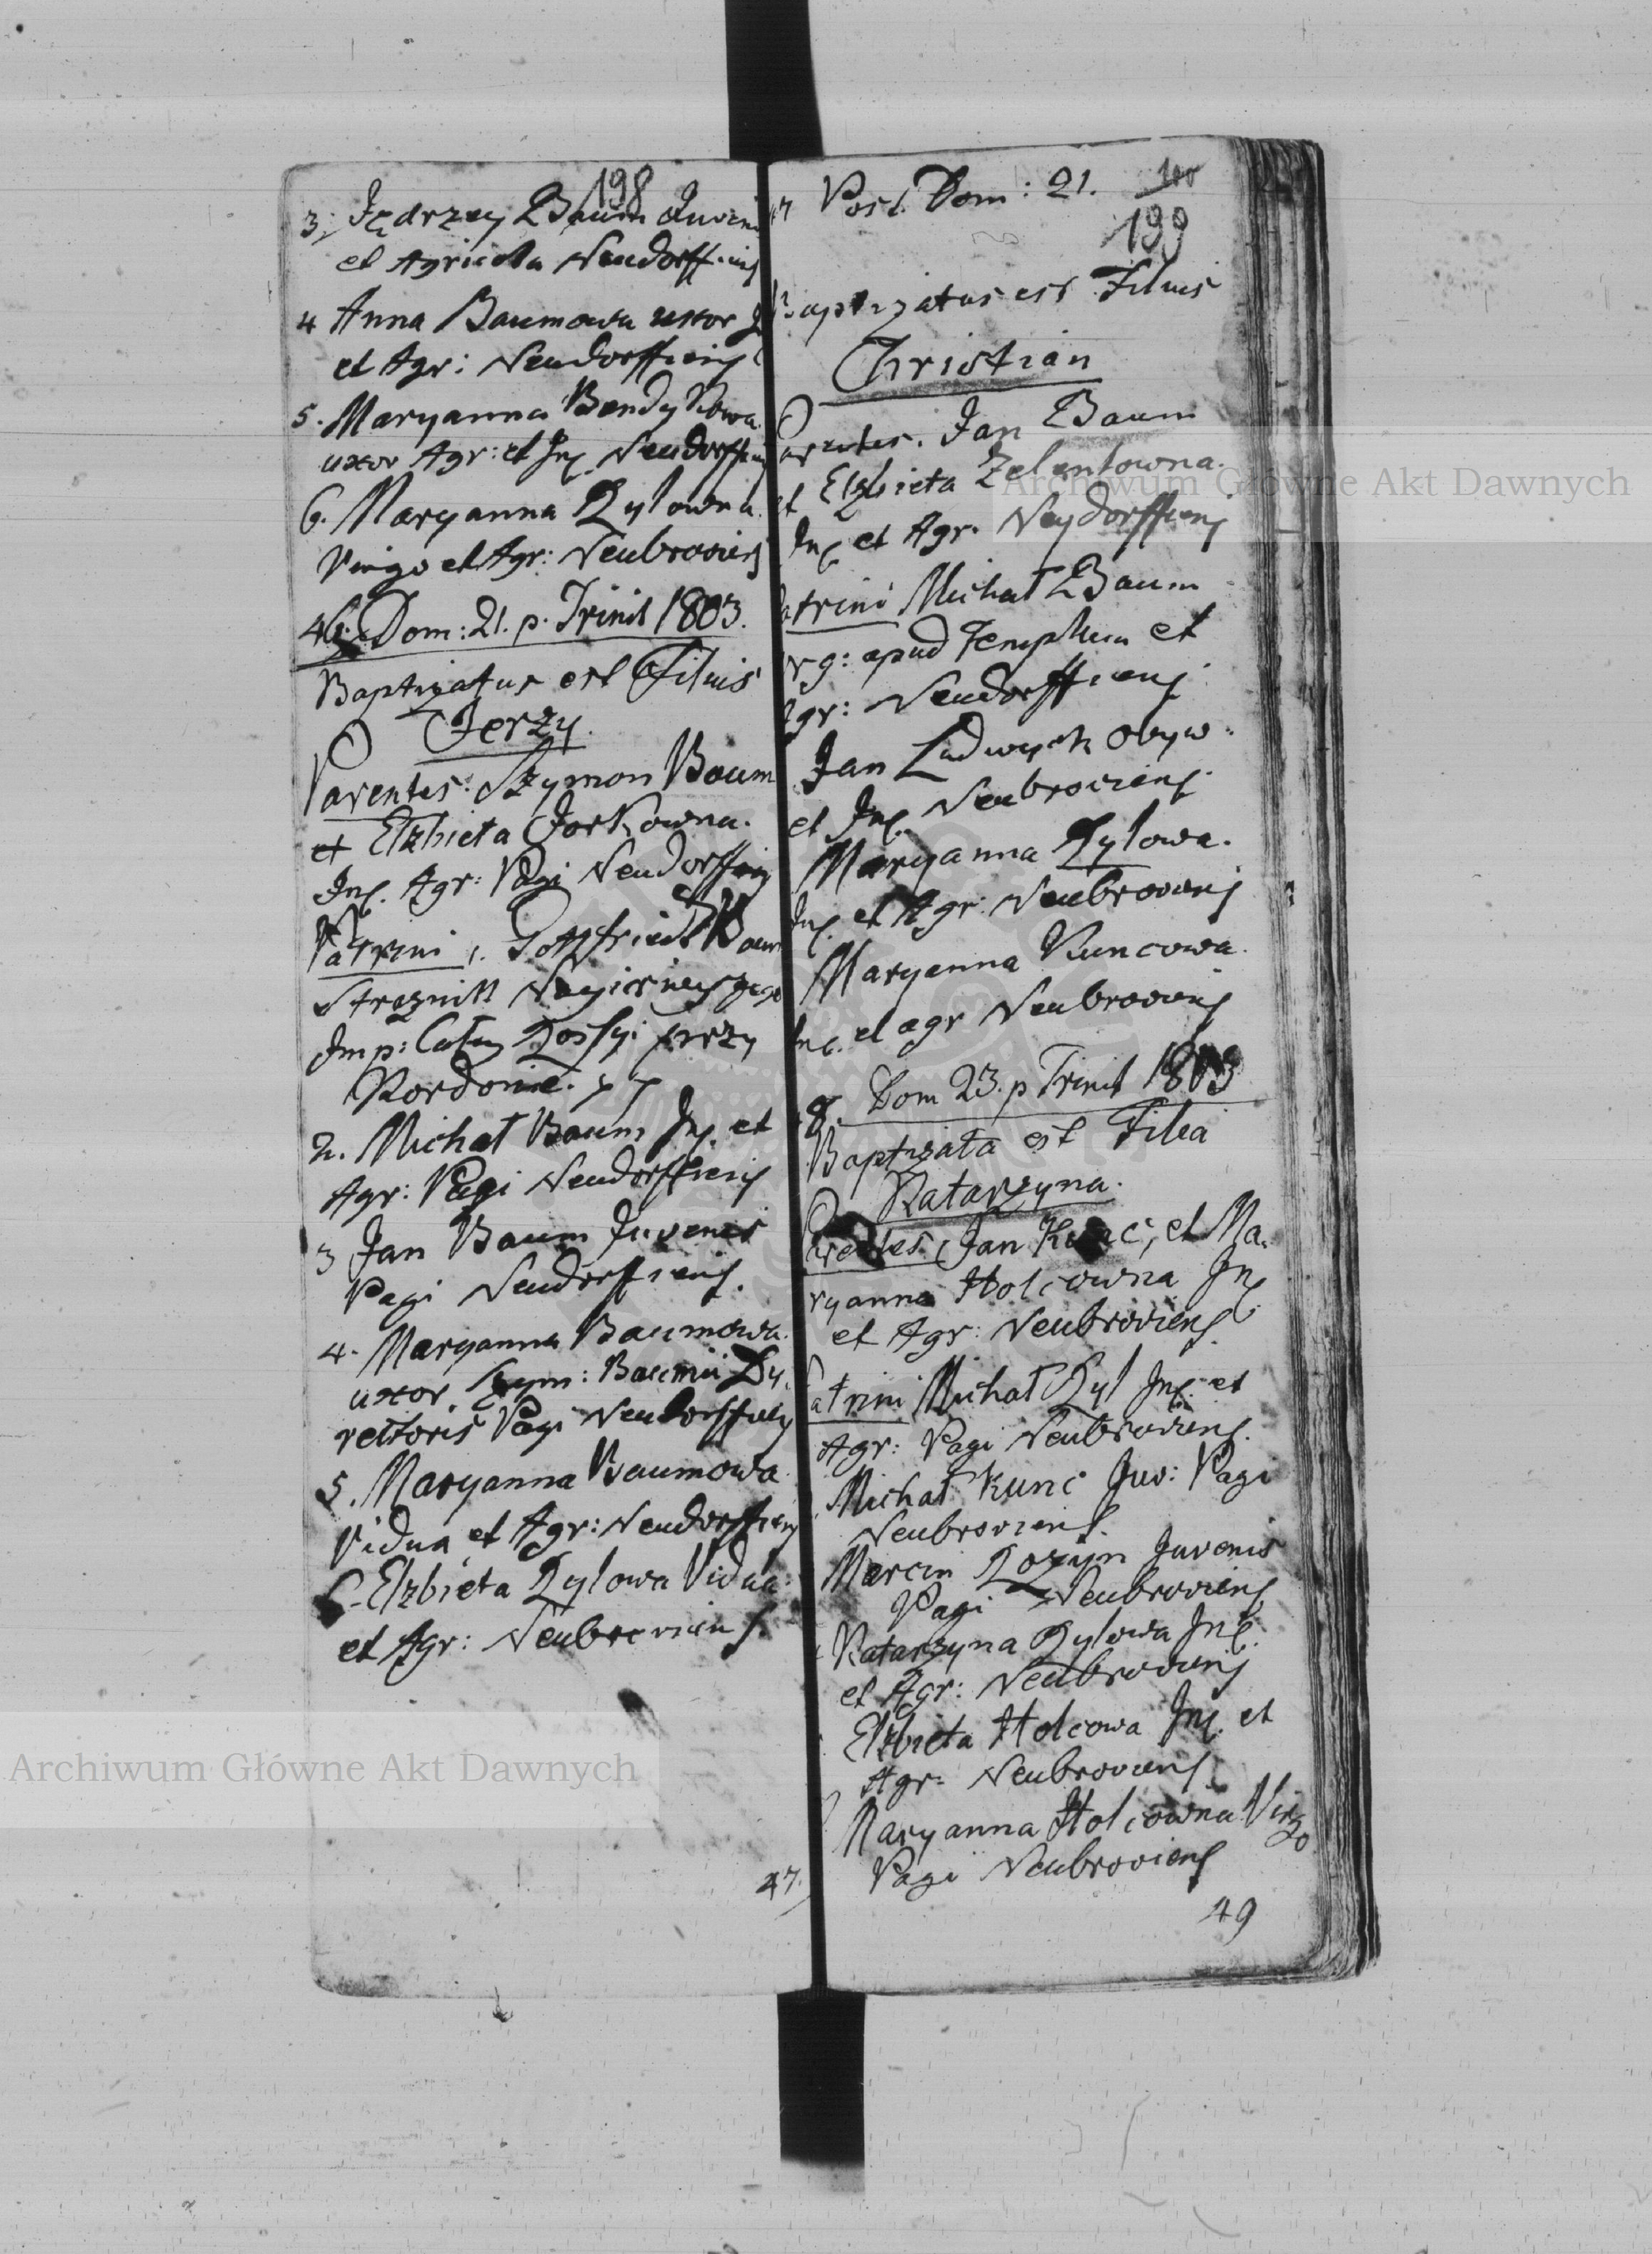 198
3. Jędrzey Baum Juvenis
et Agricola Neudorffiens
4 Anna Baumowa uxor
et Agr: Neudorffiens
5. Maryanna Bendykowa
uxor Agr: et Inq. Neudorffiens
6. Maryanna Rylowna
Virgo et Agr: Neubroviens
46. Dom: 21. p. Trinit 1803.
Baptizatus est Filius
Jerzy.
Parentes: Szymon Baum
et Elzbieta Jorkowna.
Inq. Agr: Pagi Neudorffiens
Patrini 1. Gottfriedt Baum
Straznik
Imp: Rossyi przy
Kordonie.
2. Michał Baum Inq. et
Agr: Pagi Neudorffiens
3 Jan Baum Juvenis
Pagi Neudorffiens.
4. Maryanna Baumowa.
uxor. Szym: Baumii Dy-
rektoris Pagi Neudorffiens
5. Maryanna Baumowa
Vidua et Agr: Neudorffiens
6. Elzbieta Rylowa Vidua
et Agr: Neubroviens.
47.
47 Post Dom: 21.
199
Baptizatus est Filius
Christian
Parentes. Jan Baum
et Elzbieta Zelentowna.
Inq et Agr. Neydorffiens
Patrini Michał Baum
Org: apud Templum et
Agr: Neudorffiens
Jan Ludwych obyw.
et Inq. Neubroviens.
Maryanna Rylowa.
Inq. et Agr: Neubroviens
Maryanna Kuncowa.
Inq. et agr Neubroviens
48. Dom 23. p Trinit 1803
Baptizata est Filia
Katarzyna.
Parentes Jan Kunc, et Ma-
ryanna Holcowna Inq
et Agr: Neubroviens
Patrini Michał Ryl Inq. et
Agr: Pagi Neubroviens.
Michał Kunc Juv: Pagi
Neubroviens.
Marcin Rozyn Juvenis
Pagi Neubroviens
Katarzyna Rylowa Inq.
et Agr: Neubroviens
Elzbieta Holcowa Inq. et
Agr: Neubroviens
Maryanna Holcowna Virgo
Pagi Neubroviens
49
Archiwum Główne Akt Dawnych
Archiwum Główne Akt Dawnych